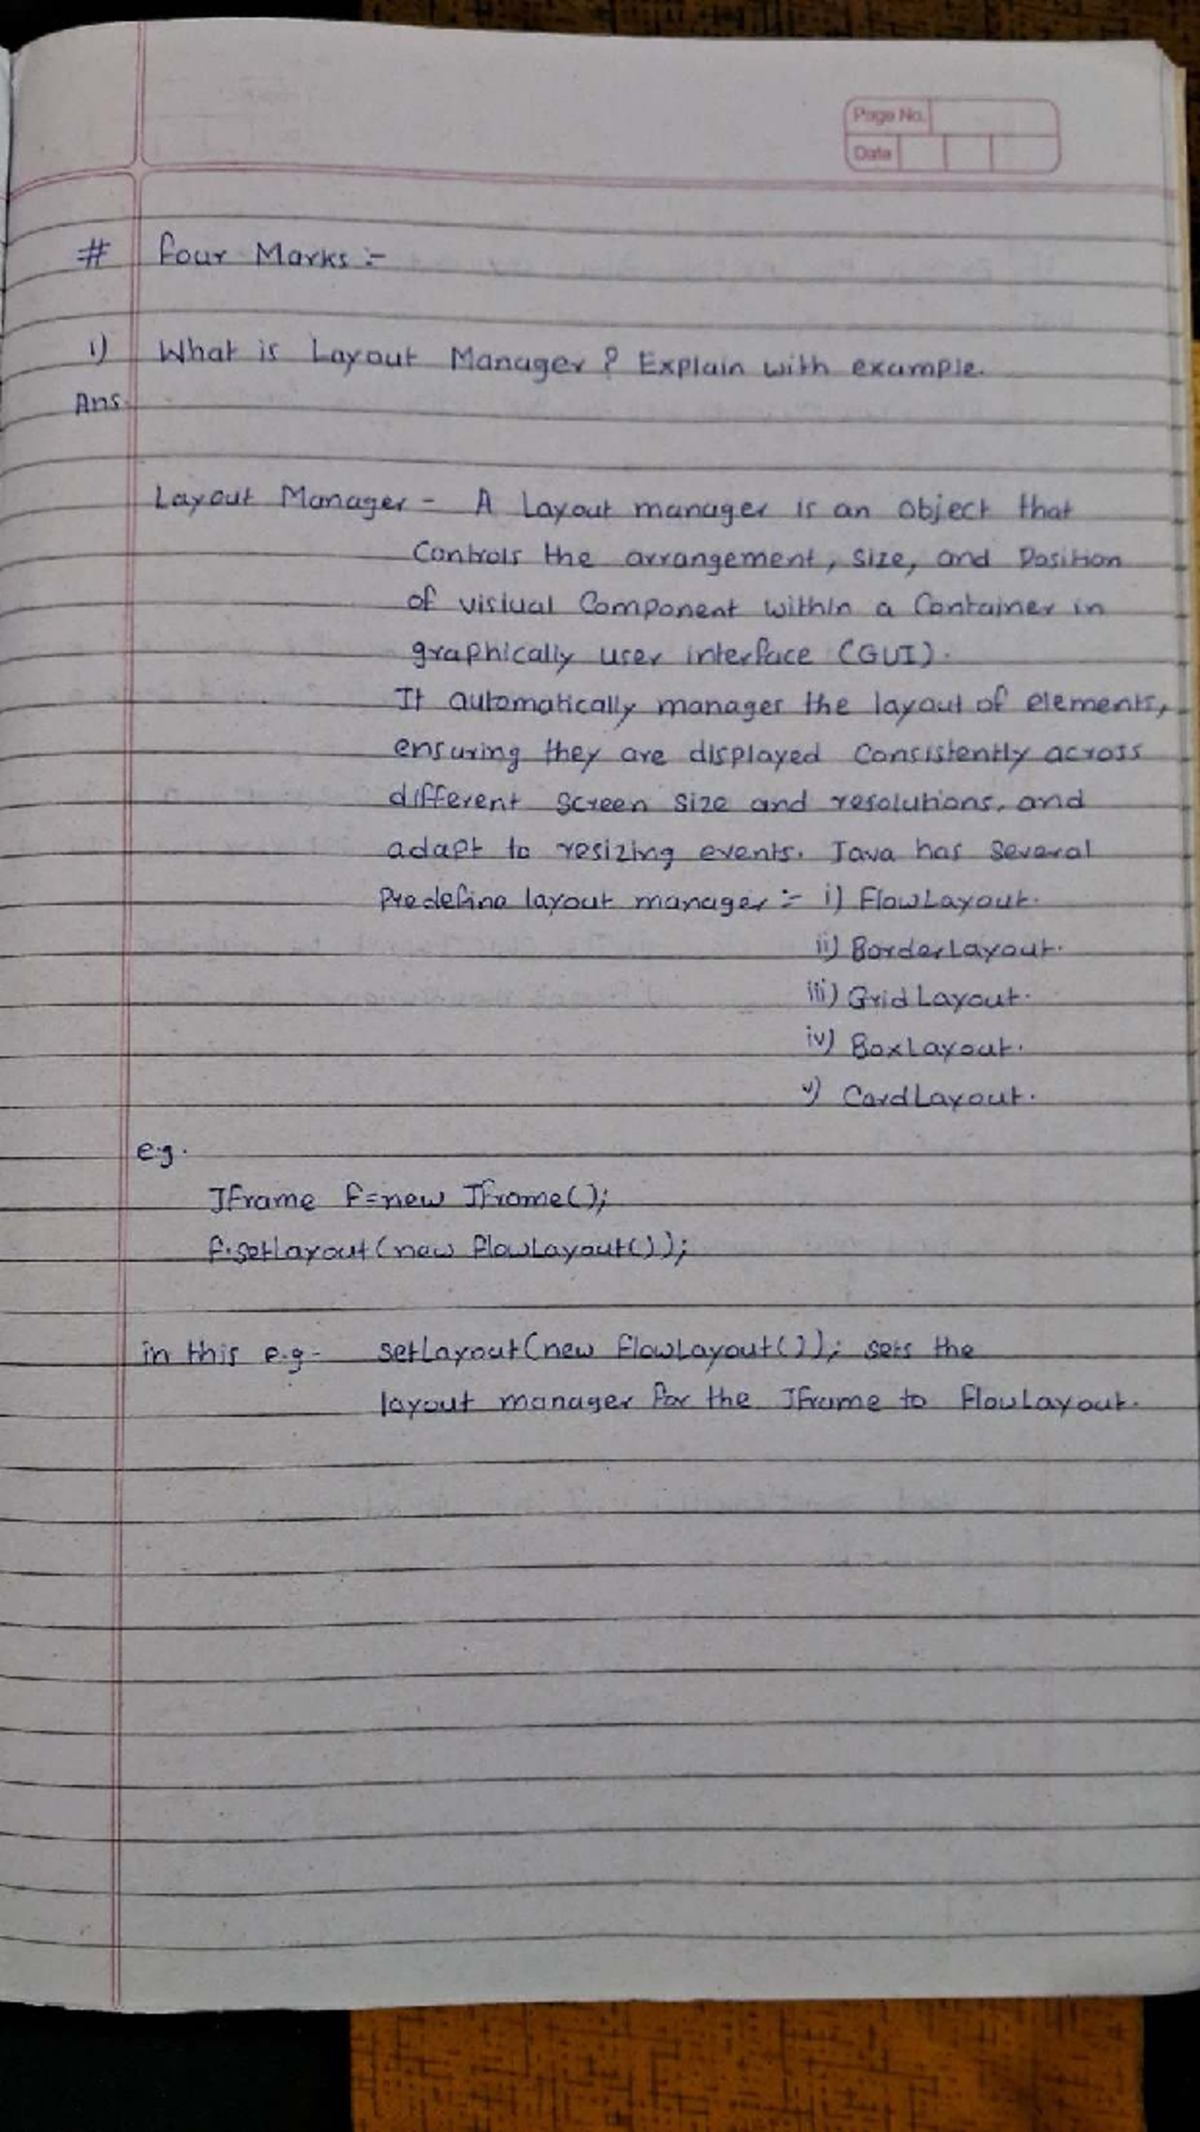 Page No.
Date
# Four Marks :-
1) What is Layout Manager ? Explain with example.
Ans.
Layout Manager - A Layout manager is an object that
Controls the arrangement, size, and Position
of visiual Component within a Container in
graphically user interface (GUI).
It automatically manages the layout of elements,
ensuring they are displayed Consistently across
different screen size and resolutions, and
adapt to resizing events. Java has several
Predefine layout manager :- i) FlowLayout.
ii) BorderLayout.
iii) GridLayout.
iv) BoxLayout.
v) CardLayout.
e.g.
JFrame f=new JFrame();
f.setlayout(new flowLayout());
in this e.g - setLayout(new flowLayout()); sets the
layout manager for the JFrame to flowLayout.